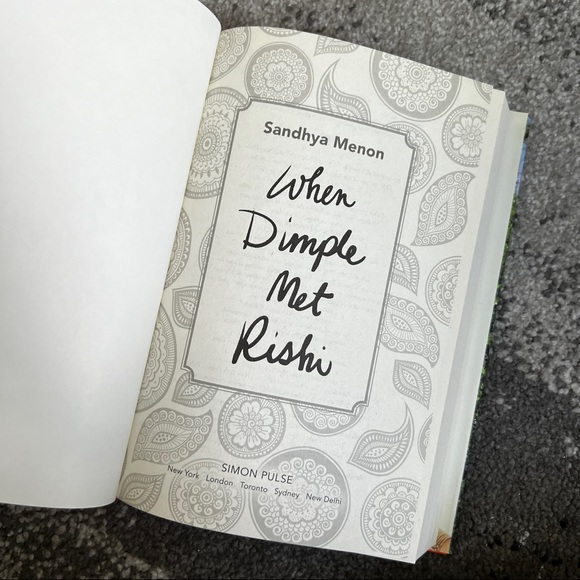 Sandhya Menon
When
Dimple
Met
Rishi
SIMON PULSE
New York London Toronto Sydney New Delhi